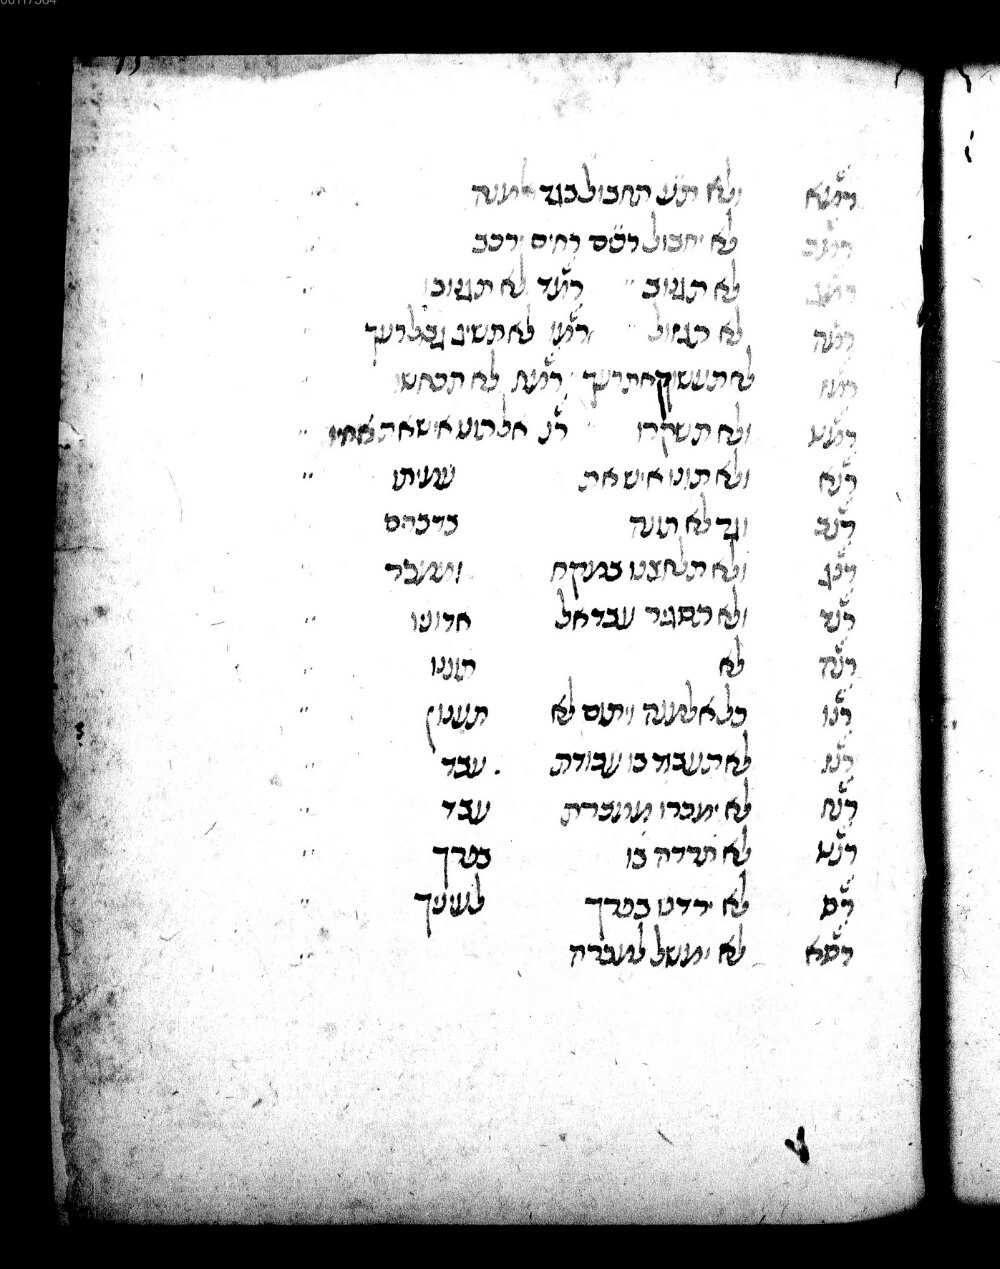 רמא ולא תחבול בגד אלמנה
רמב לא יחבול רחים ורכב
רמג לא תגנוב רמד לא תגנובו
רמה לא תגזול רמו לא תשיג גבול רעך
רמז לא תעשוק את רעך רמח לא תכחשו
רמט ולא תשקרו רנ אל תונו איש את אחיו
רנא ולא תונו איש את עמיתו
רנב וגר לא תונה בדברים
רנג ולא תלחצנו במקח וממכר
רנד ולא תסגיר עבד אל אדוניו
רנה לא תוננו
רנו כל אלמנה ויתום לא תענון
רנז לא תעבוד בו עבודת עבד
רנח לא ימכרו ממכרת עבד
רנט לא תרדה בו בפרך
רס לא ירדנו בפרך לעיניך
רסא לא ימשל למכרה